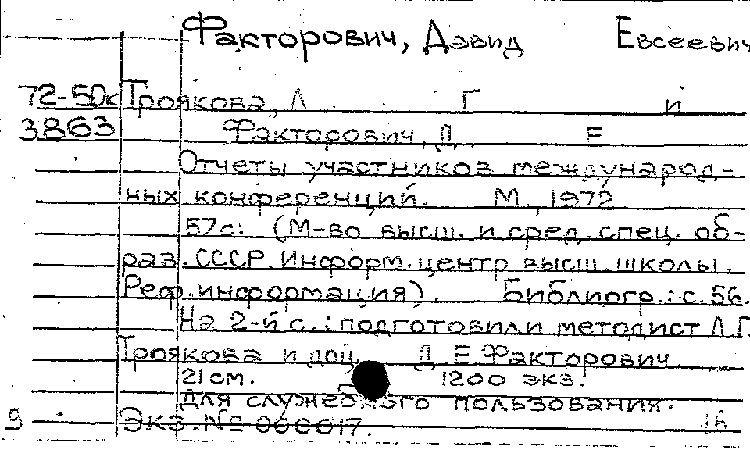 Факторович, Дэвид Евсеевич
72-50к Троякова, Л Г и
3863 Факторович, Д Е
Отчеты участников международ-
ных конференций. М., 1972
57с. (М-во высш. и сред. спец. об-
раз. СССР. Информ. центр высш. школы.
Реф. информация). Библиогр.: с. 56.
На 2-й с.: подготовили методист Л.Г.
Троякова и доц. Д.Е. Факторович
21 см. 1200 экз.
Для служебного пользования.
Экз. № 000017.